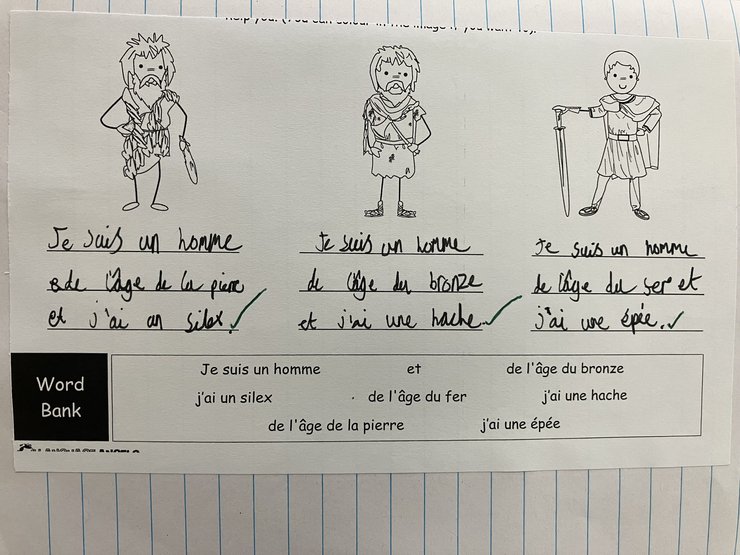 help you. (You can colour in the image if you want to).
Je suis un homme
de l'âge de la pierre
et j'ai un silex.
Je suis un homme
de l'âge du bronze
et j'ai une hache.
Je suis un homme
de l'âge du fer et
j'ai une épée.
Word
Bank
Je suis un homme et de l'âge du bronze
j'ai un silex de l'âge du fer j'ai une hache
de l'âge de la pierre j'ai une épée